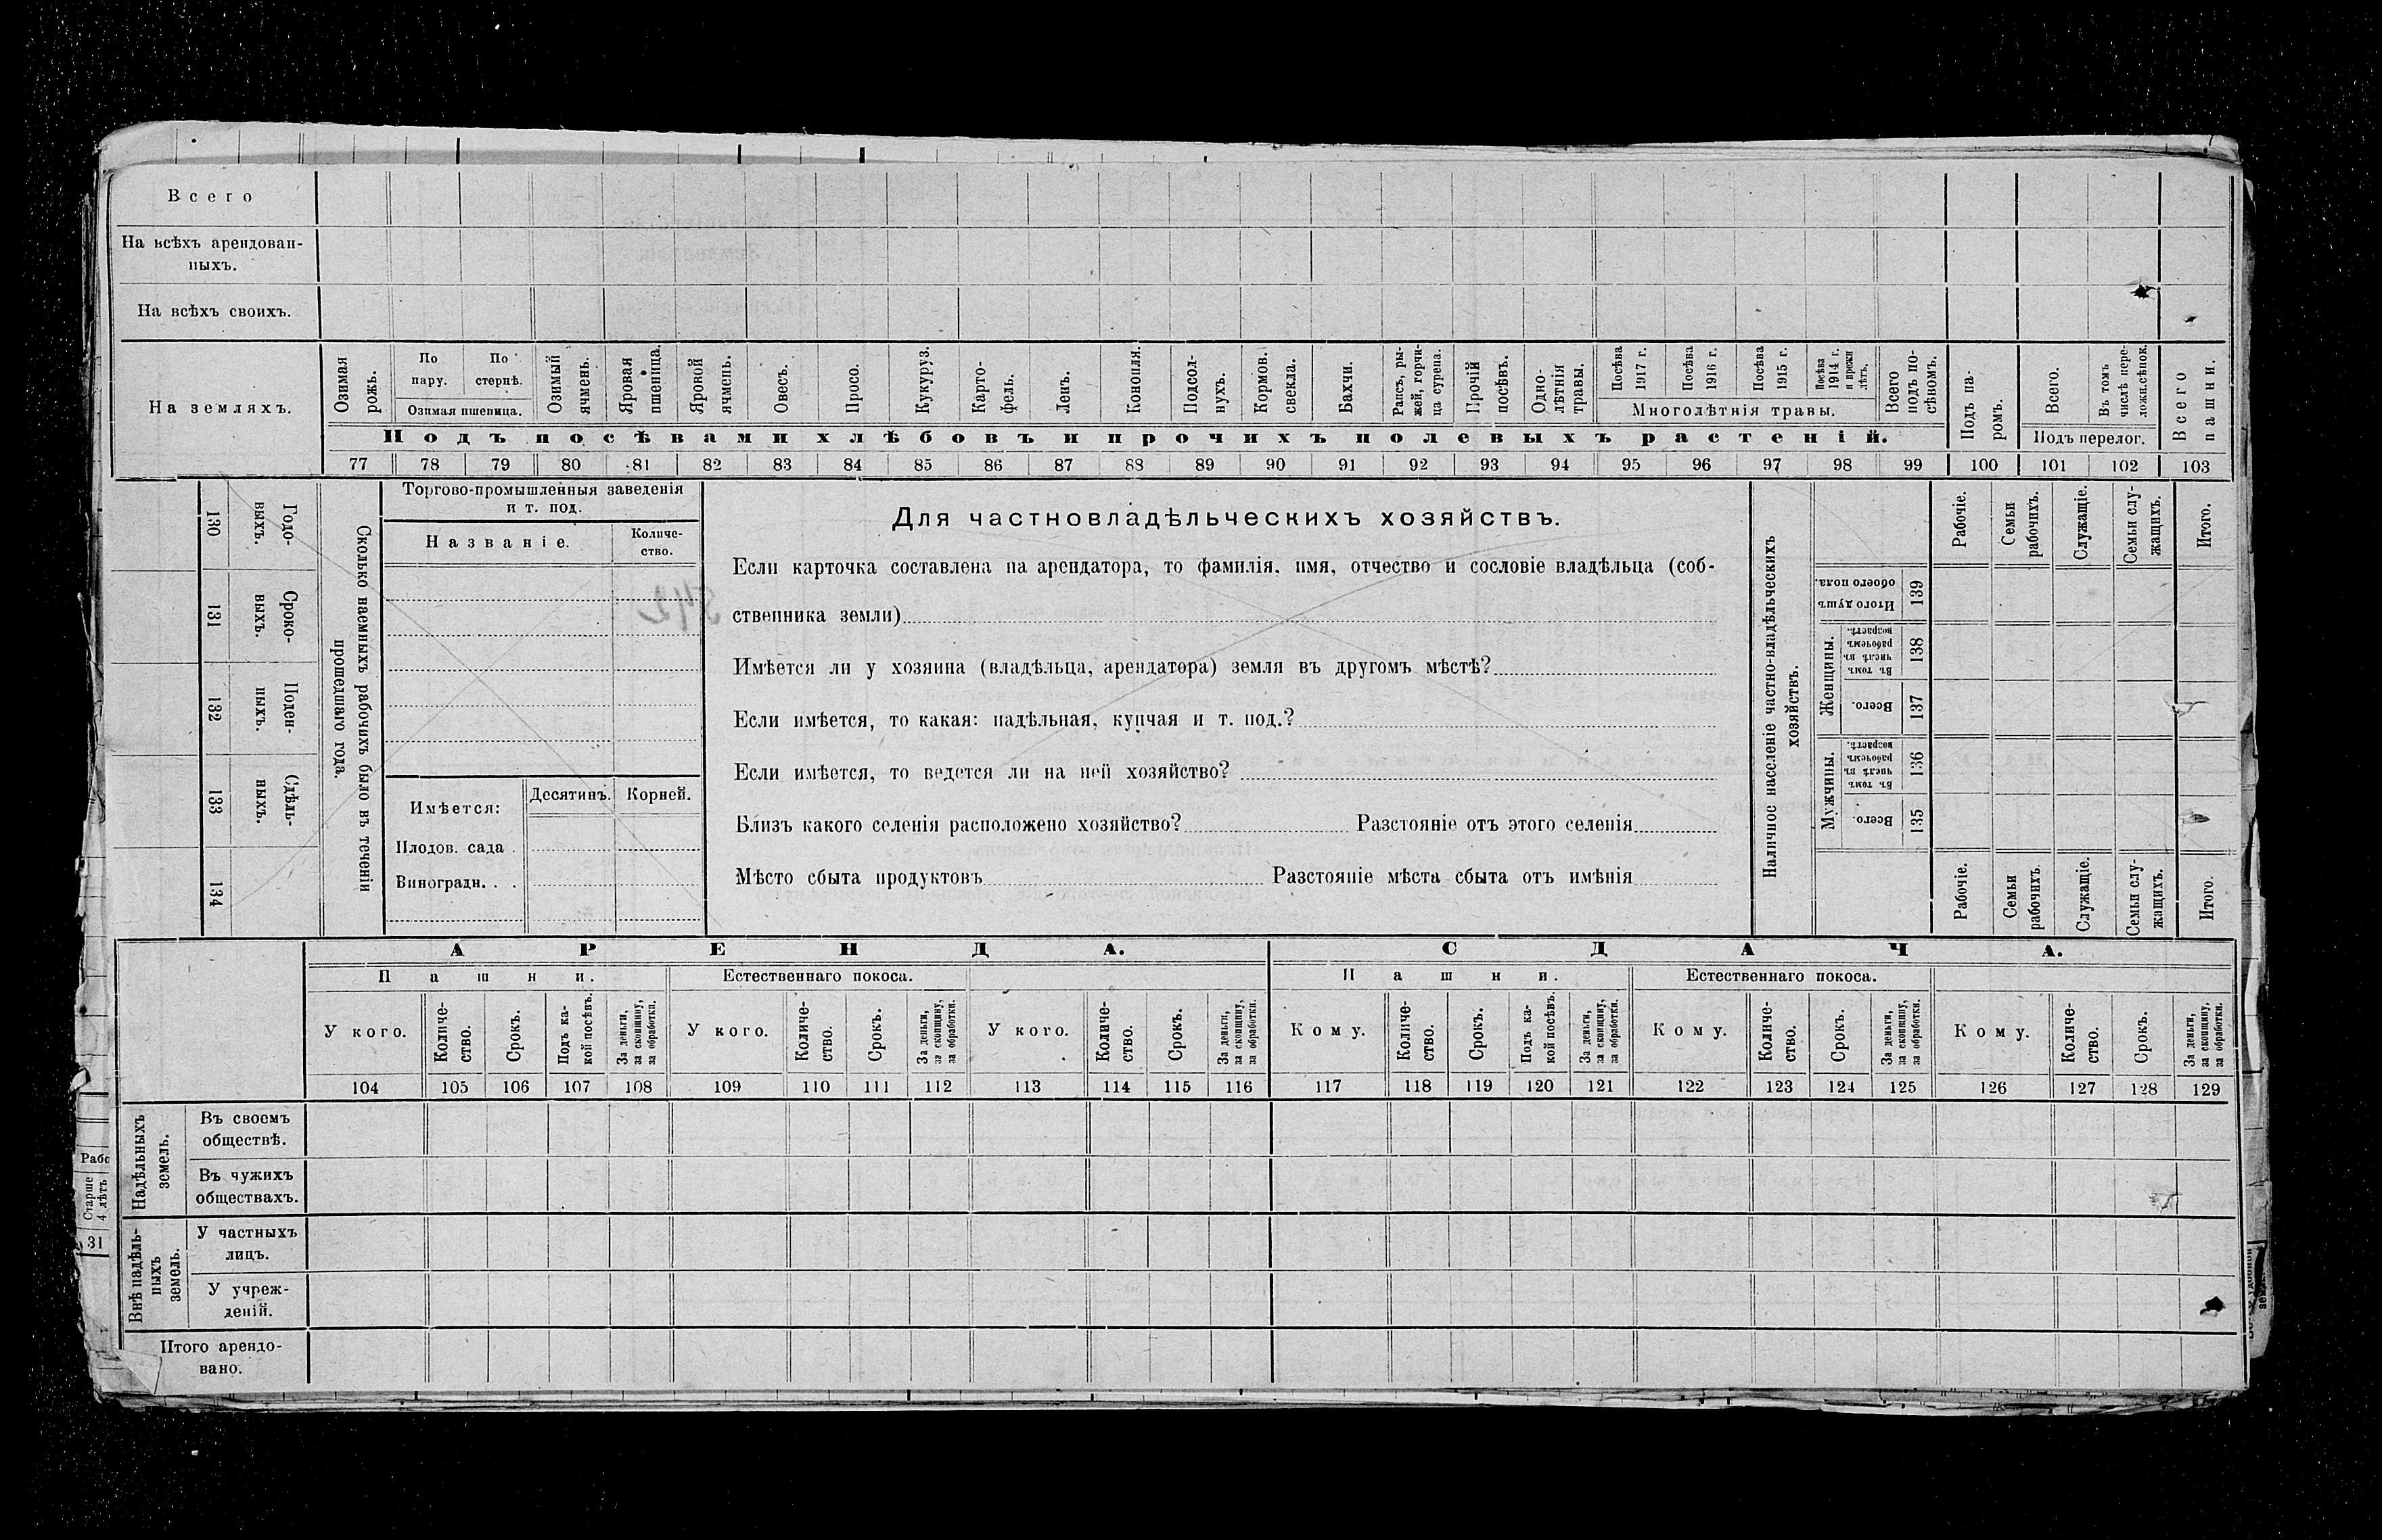 Всего
На всѣхъ арендован-
ныхъ.
На всѣхъ своихъ.
На земляхъ.
Озимая
рожь.
По
пару.
По
стернѣ.
Озимая пшеница.
Озимый
ячмень.
Яровая
пшеница.
Яровой
ячмень.
Овесъ.
Просо.
Кукуруз.
Карто-
фель.
Ленъ.
Конопля.
Подсол-
нухъ.
Кормов.
свекла.
Бахчи.
Рапсъ, ры-
жей, горчи-
ца сурепа.
Прочій
посѣвъ.
Одно-
лѣтнія
травы.
Посѣва
1917 г.
Посѣва
1916 г.
Посѣва
1915 г.
Посѣва
1914 г.
и прежн
лѣтъ.
Многолѣтнія травы.
Всего
подъ по-
сѣвомъ.
Подъ посѣвами хлѣбовъ и прочихъ полевыхъ растеній.
Подъ па-
ромъ.
Всего.
Въ томъ
числѣ пере-
ложн.сѣнок.
Подъ перелог.
Всего
пашни.
77 78 79 80 81 82 83 84 85 86 87 88 89 90 91 92 93 94 95 96 97 98 99 100 101 102 103
130
Годо-
выхъ.
131
Сроко-
выхъ.
132
Поден-
ныхъ.
133
Сдѣль-
ныхъ.
134
Сколько наемныхъ рабочихъ было въ теченіи
прошедшаго года.
Торгово-промышленныя заведенія
и т. под.
Названіе.
Количе-
ство.
Имѣется:
Десятинъ.
Корней.
Плодов. сада .
Виноградн. . .
Для частновладѣльческихъ хозяйствъ.
Если карточка составлена на арендатора, то фамилія, имя, отчество и сословіе владѣльца (соб-
ственника земли)
Имѣется ли у хозяина (владѣльца, арендатора) земля въ другомъ мѣстѣ?
Если имѣется, то какая: надѣльная, купчая и т. под.?
Если имѣется, то ведется ли на ней хозяйство?
Близъ какого селенія расположено хозяйство? Разстояніе отъ этого селенія
Мѣсто сбыта продуктовъ Разстояніе мѣста сбыта отъ имѣнія
Наличное населеніе частно-владѣльческихъ
хозяйствъ.
Рабочіе.
Семьи
рабочихъ.
Служащіе.
Семьи слу-
жащихъ.
Итого.
Итого душъ
обоего пола.
139
Женщины.
Въ томъ
числѣ въ
рабочемъ
возрастѣ.
138
Всего.
137
Мужчины.
Въ томъ
числѣ въ
рабочемъ
возрастѣ.
136
Всего.
135
Рабочіе.
Семьи
рабочихъ.
Служащіе.
Семьи слу-
жащихъ.
Итого.
АРЕНДА.
СДАЧА.
Пашни.
Естественнаго покоса.
Пашни.
Естественнаго покоса.
У кого.
Количе-
ство.
Срокъ.
Подъ ка-
кой посѣвъ.
За деньги,
за скопщину,
за обработки.
У кого.
Количе-
ство.
Срокъ.
За деньги,
за скопщину,
за обработки.
У кого.
Количе-
ство.
Срокъ.
За деньги,
за скопщину,
за обработки.
Кому.
Количе-
ство.
Срокъ.
Подъ ка-
кой посѣвъ.
За деньги,
за скопщину,
за обработки.
Кому.
Количе-
ство.
Срокъ.
За деньги,
за скопщину,
за обработки.
Кому.
Количе-
ство.
Срокъ.
За деньги,
за скопщину,
за обработки.
104 105 106 107 108 109 110 111 112 113 114 115 116 117 118 119 120 121 122 123 124 125 126 127 128 129
Надѣльныхъ
земель.
Въ своемъ
обществѣ.
Въ чужихъ
обществахъ.
Внѣ надѣль-
ныхъ
земель.
У частныхъ
лицъ.
У учреж-
деній.
Итого арендо-
вано.
Рабо
Старше
4 лѣтъ
31